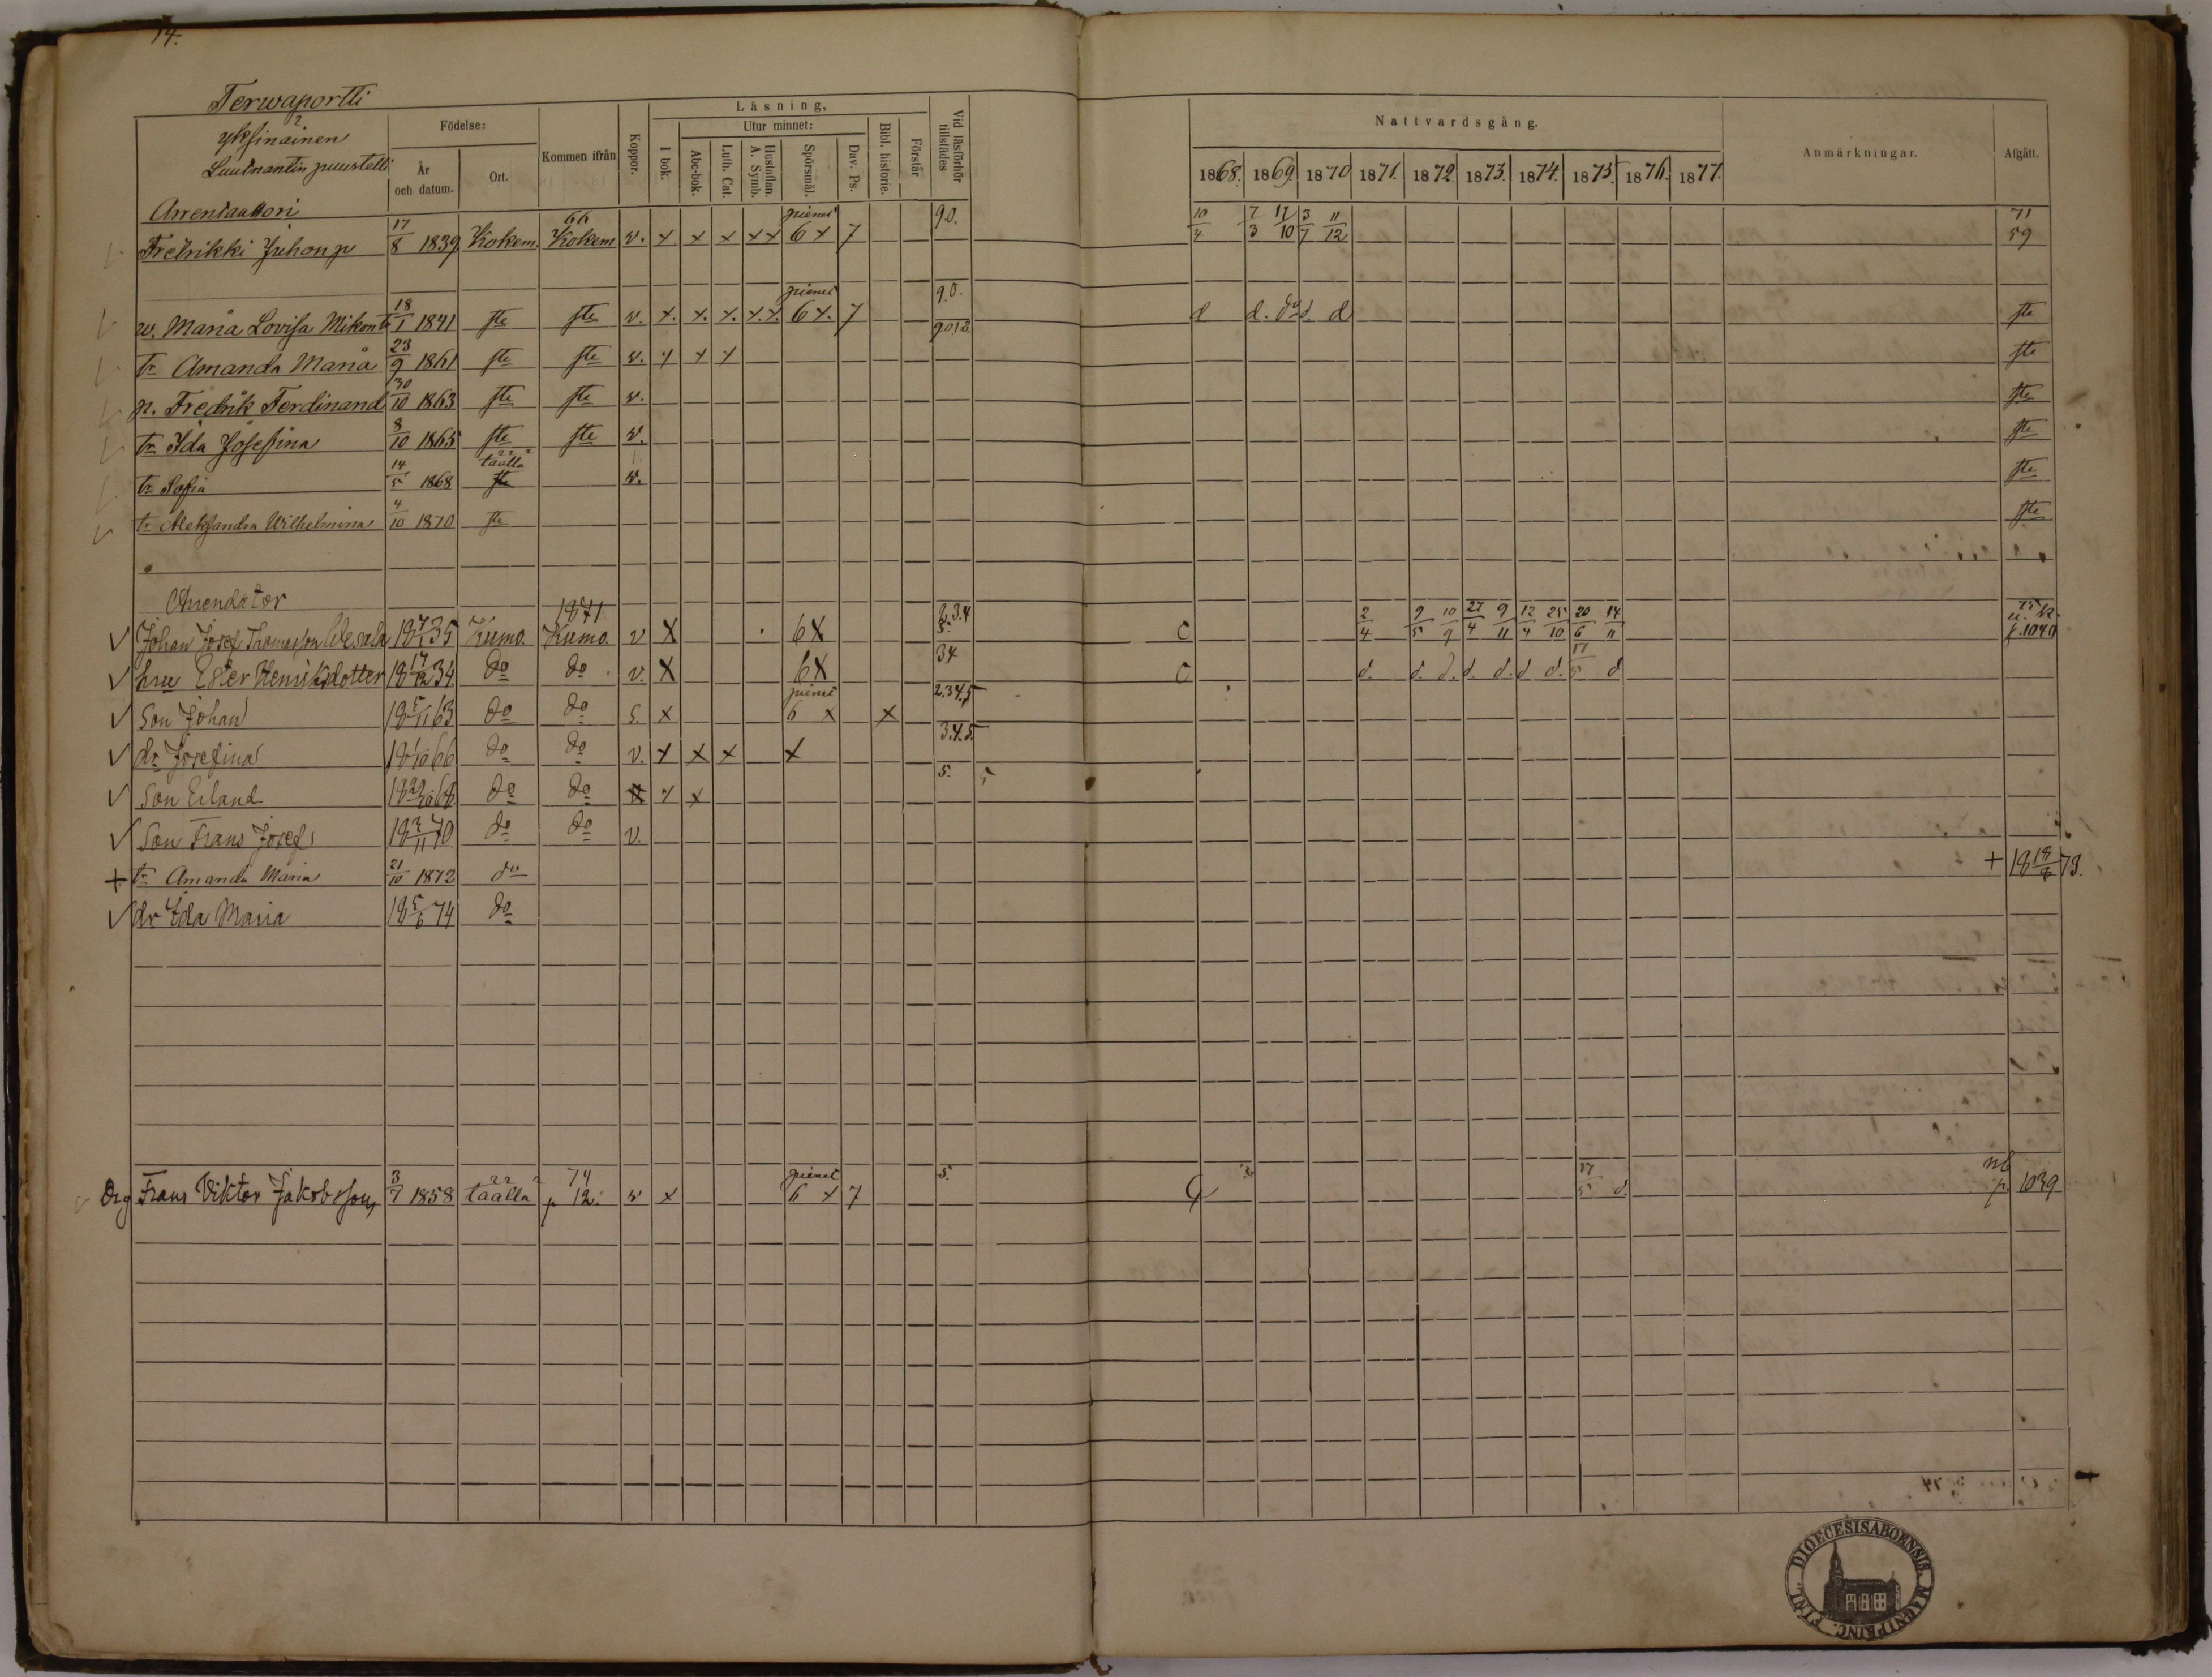 14.
Terwaportti
yksinäinen
Luutnantin puustelli
Födelse:
År och datum.
Ort.
Kommen ifrån
Koppor.
Läsning.
I bok.
Utur minnet:
Abc-bok.
Luth. Cat.
Hustaflan. A. Symb.
Spörsmål.
Dav. Ps.
Bibl. historie.
Förstår
Vid läsförhör tillstädes
Nattvardsgång.
1868. 1869. 1870 1871. 1872. 1873. 1874. 1875. 1876. 1877.
Anmärkningar.
Afgått.
Arrendaattori
Fredrikki Juhonp 17/8 1839. Kokem. 66 Kokem v. x x x xx pienet 6 x 7 9.0. 10/4 7/3 17/10 3/7 11/12 71 59
w. Maria Lovisa Mikont 18/1 1841 ste ste v. x. x. x. x.x. pienet 6 x. 7 9.0. d d. d d ste
tr Amanda Maria 23/9 1861 ste ste v. x x x 9.0.1.2. ste
p. Fredrik Ferdinand 30/10 1863 ste ste v. ste
tr Ida Josefina 8/10 1865 ste ste v. ste
tr Sofia 14/5 1868 täällä v. ste
tr Aleksandra Wilhelmina 4/10 1870 ste ste
Arrendator
Johan Josef Thomasson 1835 Kumo. 1871 Kumo v X 6X 2.3.4 5. C 2/4 9/5 10/9 27/4 9/11 12/4 25/10 20/6 14/11 p. 1040
hru Ester Henriksdotter 18 17/12 34. do do v. X 6X 34 C d. d. d. d. d. d d. 17/5 d
Son Johan 18 5/11 63 do do S. x pienet 6 x x 2.3.4.5
dr Josefina 18 1/10 66 do do v. x x x x 3.4.5.
Son Erland 18 29/10 68 do do x x 5. 5
Son Frans Josef 18 3/11 70 do do v.
+ tr Amanda Maria 21/10 1872 do + 18 18/8 73.
dr Ida Maria 18 5/6 74 do
Drg Frans Viktor Jakobsson 3/7 1858 täällä 74 p 12. v x pienet 6 x 7 5. 17/5 d. nb p. 1039
DIOECESIS ABOENSIS. MAGNI PRINC. FINL.